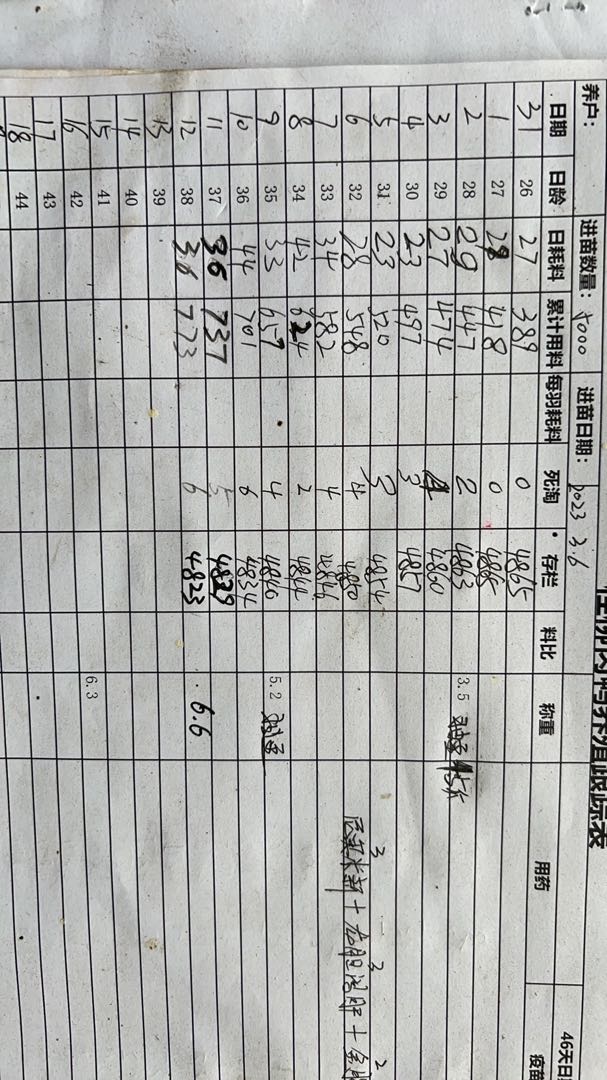 养殖跟踪表
养户： 进苗数量：5000 进苗日期：2023 3.6
日期 日龄 日耗料 累计用料 每羽耗料 死淘 存栏 料比 称重 用药 46天日 疫苗
31 26 27 389 0 4865
1 27 29 418 0 4865
2 28 29 447 2 4863 3.5
3 29 27 474 4860
4 30 23 497 3 4857
5 31 23 520 3 4854
6 32 28 548 4 4850 3 3 2
7 33 34 582 4 4846
8 34 42 624 2 4844
9 35 33 657 4 4840 5.2
10 36 44 701 6 4834
11 37 36 737 5 4829
12 38 36 773 6 4823 6.6
13 39
14 40
15 41 6.3
16 42
17 43
18 44